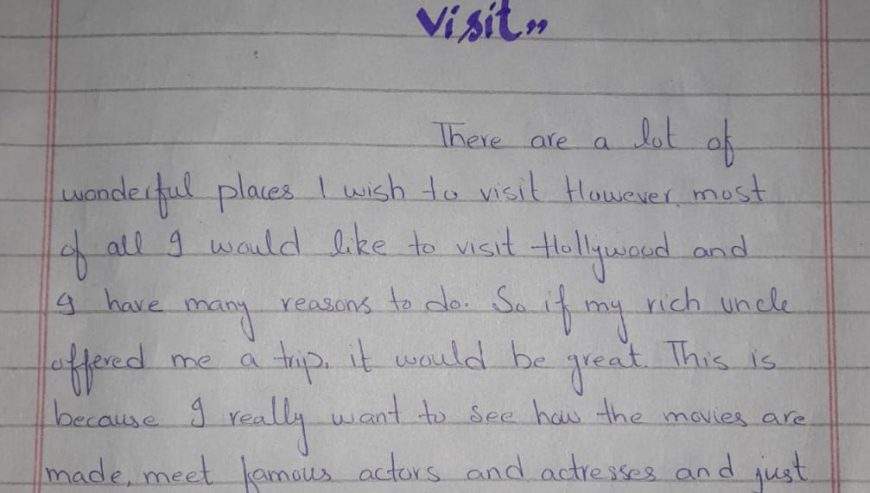 visit"
There are a lot of
wonderful places I wish to visit However, most
of all I would like to visit Hollywood and
I have many reasons to do. So if my rich uncle
offered me a trip, it would be great. This is
because I really want to see how the movies are
made, meet famous actors and actresses and just